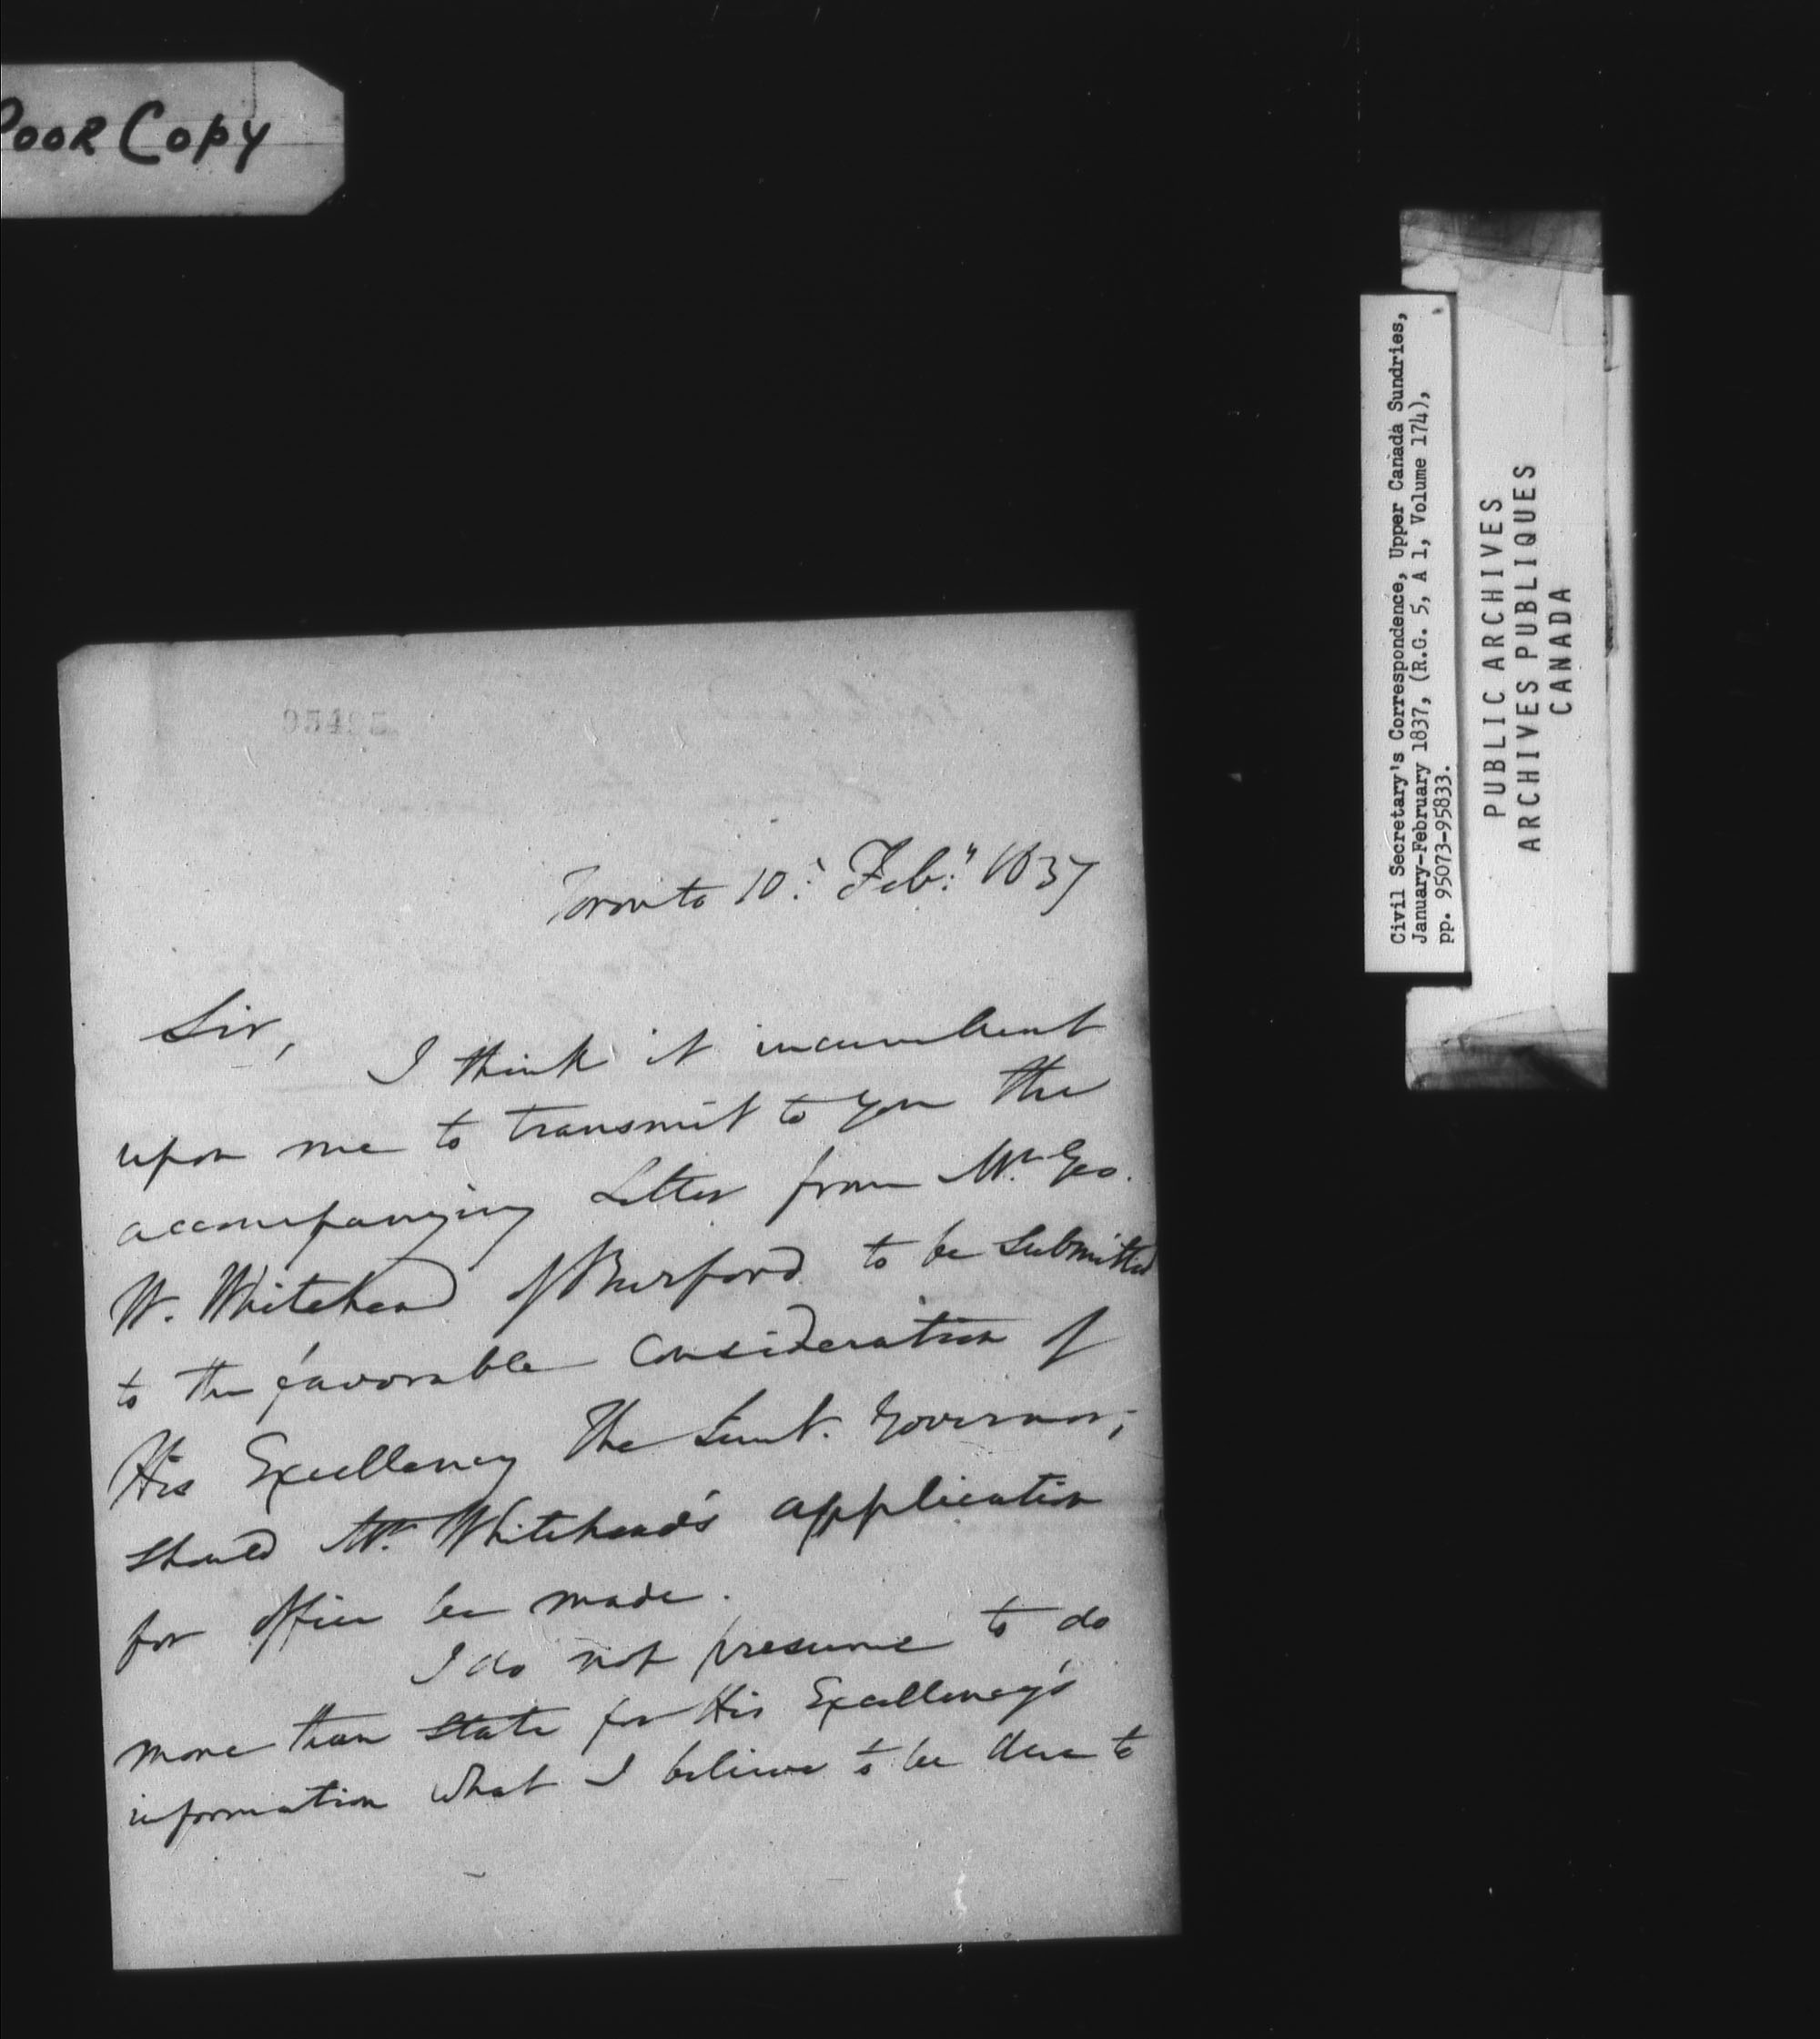 Poor Copy
Toronto 10: Feb:y 1837
Sir,
I think it incumbent
upon me to transmit to you the
accompanying Letter from Mr. Geo.
W. Whitehead of Burford to be Submitted
to the favorable Consideration of
His Excellency The Lieut. Governor;
Should Mr. Whitehead's application
for office be made.
I do not presume to do
more than State for His Excellency's
information what I believe to be due to
Civil Secretary's Correspondence, Upper Canada Sundries,
January-February 1837, (R.G. 5, A 1, Volume 174),
pp. 95073-95833.
PUBLIC ARCHIVES
ARCHIVES PUBLIQUES
CANADA